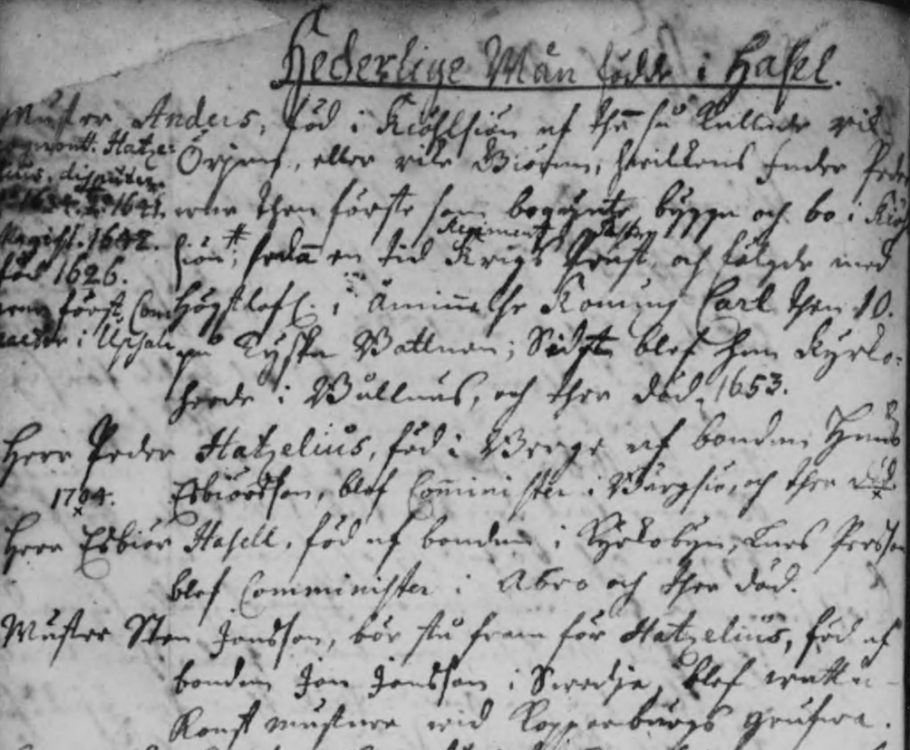 Hederlige Män födde i Hasel.
Mäster Anders, föd i Kiöhlsiön af the så kallade rike
Örjens, eller rike Biörns, hwilkens fader Peder
war then förste som begynte byggia och bo i Kiöhl
siön; sedan en tid Krigs Präst och fölgde med
Regiments Pastor
Högstlofl. i åminnelse Konung Carl then 10.
på Tyska Wallnen; Sidst blef han Kyrko-
herde i Wållnäs, och ther död 1653.
Hatze-
lius, disputer.
1634. 1641.
Magist. 1642.
föd 1626.
war först Con
rector i Upsala
Herr Peder Hatzelius, föd i Berge af bonden Hans
1704. Esbiörsson, blef Comminister i Bärgsiö, och ther död
Herr Esbiör Hasell, föd af bonden i Kyrkobyn, Lars Persson
blef Comminister i Åbro och ther död.
Mäster Sten Jonsson, bör stå fram för Hatzelius, föd af
bonden Jon Jonsson i Swedja, blef wattu-
konst mästare wid Kopparbergs grufwa.